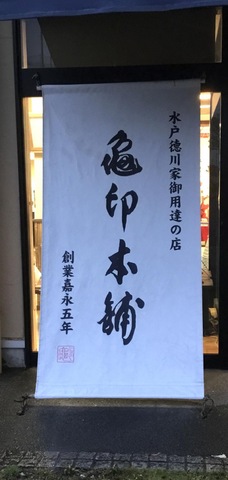 水戸徳川家御用達の店
亀印本舗
創業嘉永五年